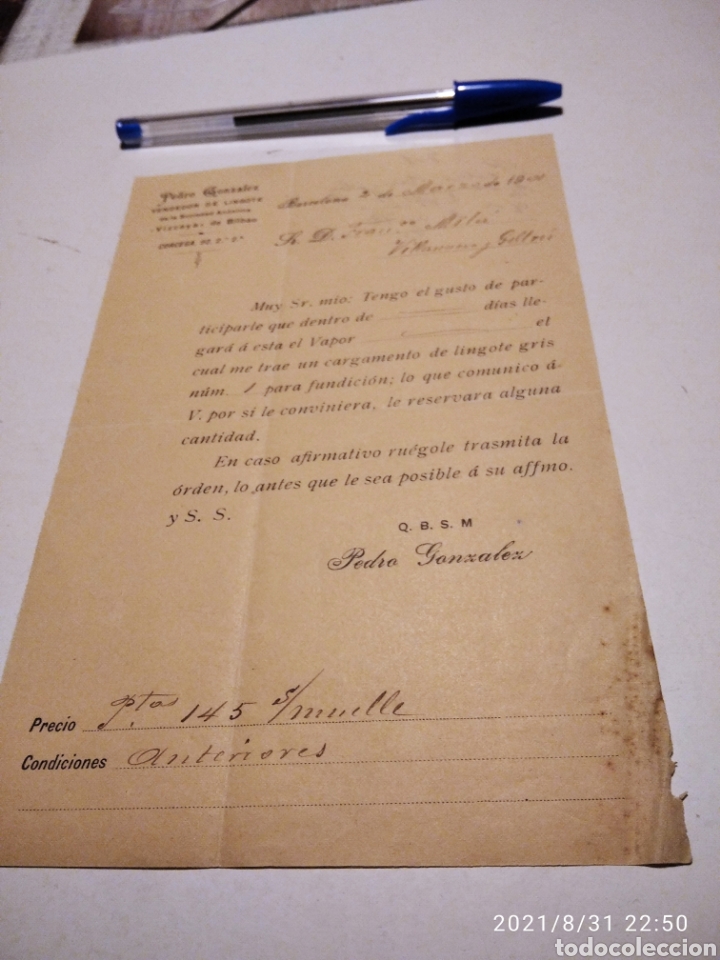 Pedro Gonzalez
VENDEDOR DE LINGOTE
de la Sociedad Anónima
Vizcaya, de Bilbao
CORCEGA, 90, 2.º 2.ª
Barcelona 2 de Marzo de 190
Sr. D. Milá
Villanueva y Geltrú
Muy Sr. mio: Tengo el gusto de par-
ticiparle que dentro de días lle-
gará á esta el Vapor el
cual me trae un cargamento de lingote gris
núm. 1 para fundición; lo que comunico á
V. por si le conviniera, le reservara alguna
cantidad.
En caso afirmativo ruégole trasmita la
órden, lo antes que le sea posible á su affmo.
y S. S.
Q. B. S. M
Pedro Gonzalez
Precio Ptas 145 s/muelle
Condiciones anteriores
2021/8/31 22:50
todocoleccion